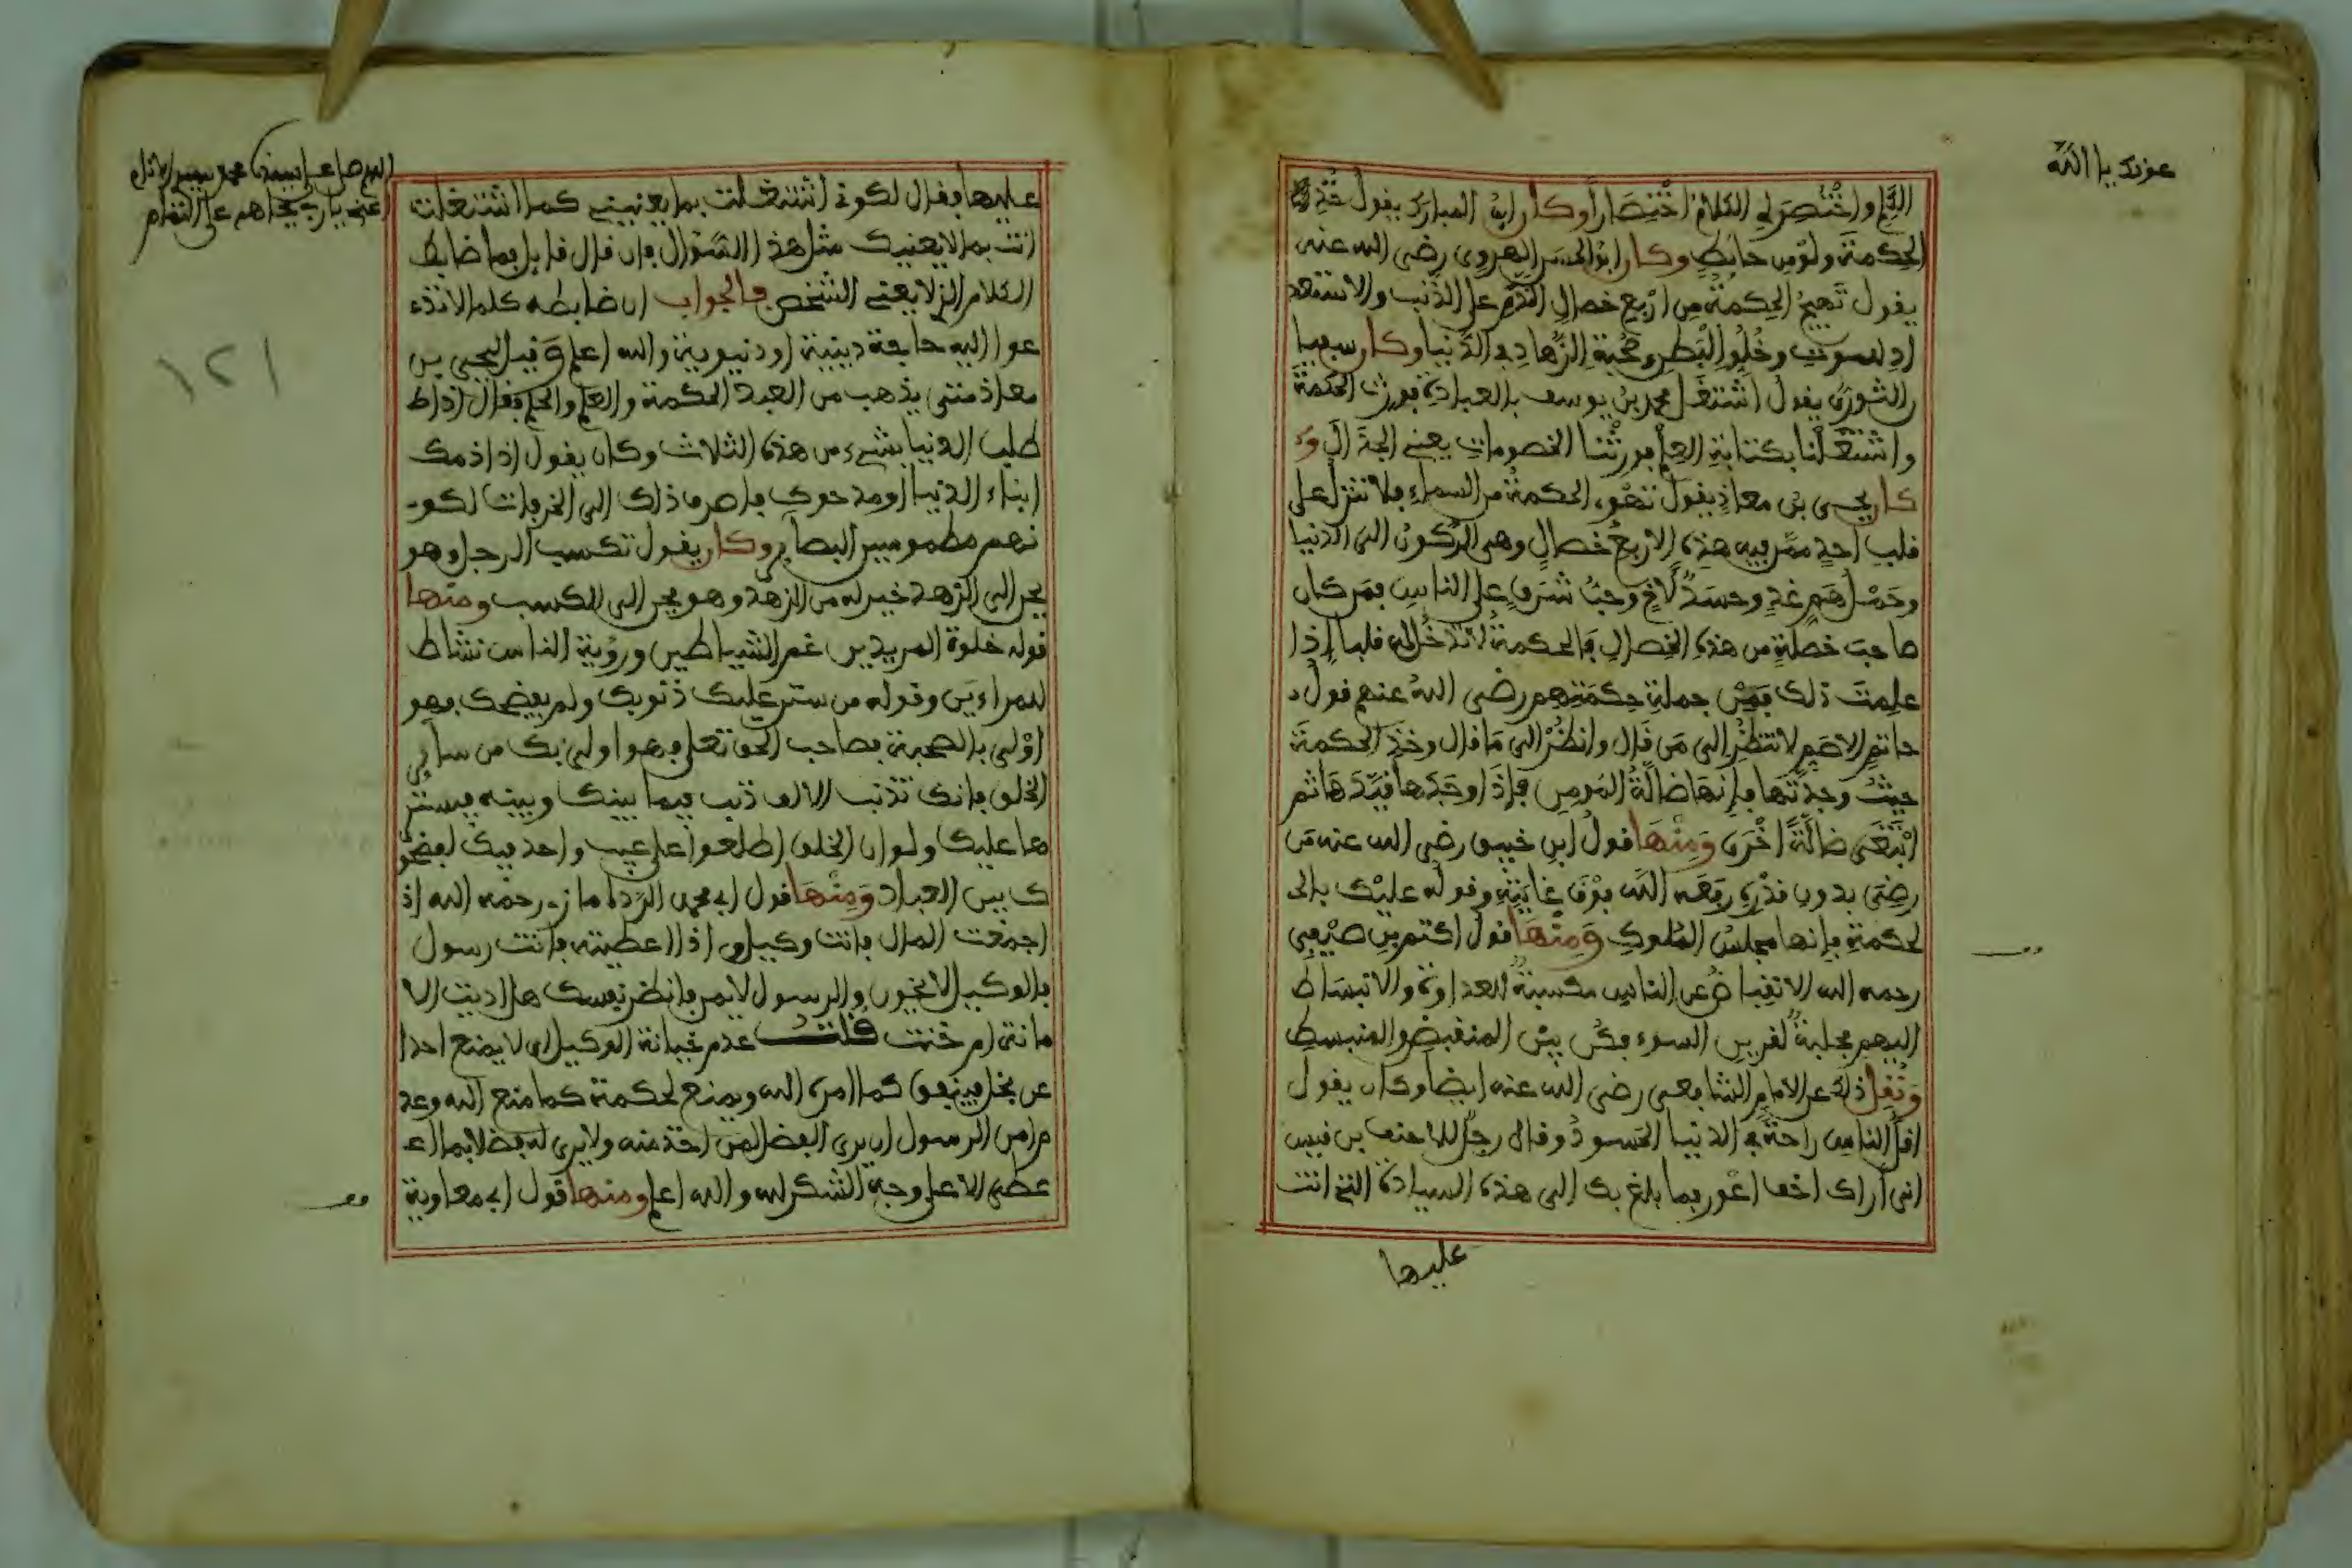 عونك يا الله
الكلم واختصر لي الكلام اختصارا وكان ابن المبارك يقول خذوا
الحكمة ولو من حائط وكان ابو الحسن الهروى رضى الله عنه
يقول تهيج الحكمة من اربع خصال الندم على الذنب والاستعد
اد للموت وخلو البطن وصحبة الزهاد في الدنيا وكان سفيا
ن الثورى يقول اشتغل محمد بن يوسف بالعبادة فورث الحكمة
واشتغلنا بكتابة العلم فورثنا الخصومات يعني الجدال و
كان يحيى بن معاذ يقول تهوى الحكمة من السماء فلا تنزل على
قلب احد ممن فيه هذه الاربع خصال وهى الركون الى الدنيا
وحمل هم غد وحسد لاخ وحب شرف على الناس فمن كان
صاحب خصلة من هذه الخصال فالحكمة لا تدخل له قلبا إذا
علمت ذلك فمن جملة حكمتهم رضى الله عنهم قول
حاتم الاصم لا تنظر إلى من قال وانظر الى ما قال وخذ الحكمة
حيث وجدتها فإنها ضالة المومن فإذا وجدها قيدها ثم
ابتغى ضالة اخرى ومنها قول ابن خبيق رضى الله عنه من
رضى بدون قدره رفعه الله فوق غايته وقوله عليك بالـ
لحكمة فإنها مجلس الملوك ومنها قول اكثم بن صيفي
رحمه الله الانقباض عن الناس مكسبة للعداوة والانبساط
اليهم مجلبة لقرين السوء فكن بين المنقبض والمنبسط
ونقل ذلك عن الامام الشافعى رضى الله عنه ايضا وكان يقول
اقل الناس راحة في الدنيا الحسود وقال رجل للاحنف بن قيس
انى اراك احنف اعور بما بلغ بك الى هذه السيادة التي انت
عليها
اللهم صل على نبينا محمد
عليها فقال لكونى اشتغلت بما يعنيني كما اشتغلت
انت بما لا يعنيك مثل هذا السؤال فان قال قايل فما ضابط
الكلام الذ لا يعني الشخص فالجواب ان ضابطه كلما لا تد
عوا اليه حاجة دينية او دنيوية والله اعلم وقيل ليحيى بن
معاذ متى يذهب من العبد الحكمة والعلم والحلم فقال اذا ط
طلب الدنيا بشيء من هذه الثلاث وكان يقول اذا ذمك
ابناء الدنيا او مدحوك فاصرف ذلك الى الخرفات لكو
نهم مطموسين البصائر وكان يقول تكسب الرجل وهو
يحن الى الزهد خير له من الزهد وهو يحن الى الكسب ومنها
قوله خلوة المريدين غم الشياطين ورؤية الناس نشاط
للمراءين وقوله من ستر عليك ذنوبك ولم يفضحك فهو
اولى بالصحبة فصاحب الحق تعلى فهو اولى بك من ساير
الخلق فانك تذنب الالف ذنب فيما بينك وبينه فيستر
ها عليك ولو ان الخلق اطلعوا على عيب واحد فيك لفضحو
ك بين العباد ومنها قول ابي محمد رحمه الله اذ
اجمعت المال فانت وكيل واذا اعطيته فانت رسول
فالوكيل لا يخون والرسول لا يمن فانظر نفسك هل اديت الا
مانة ام خنت قلت عدم خيانة الوكيل ان لا يمنع احدا
عن بخل فينفق كما امره الله ويمنع لحكمة كما منع الله وعد
م امن الرسول ان يرى الفضل لمن اخذ منه ولا يرى له فضلا بما ا
عطى الا على وجه الشكر لله والله اعلم ومنها قول ابي معاوية
١٢١